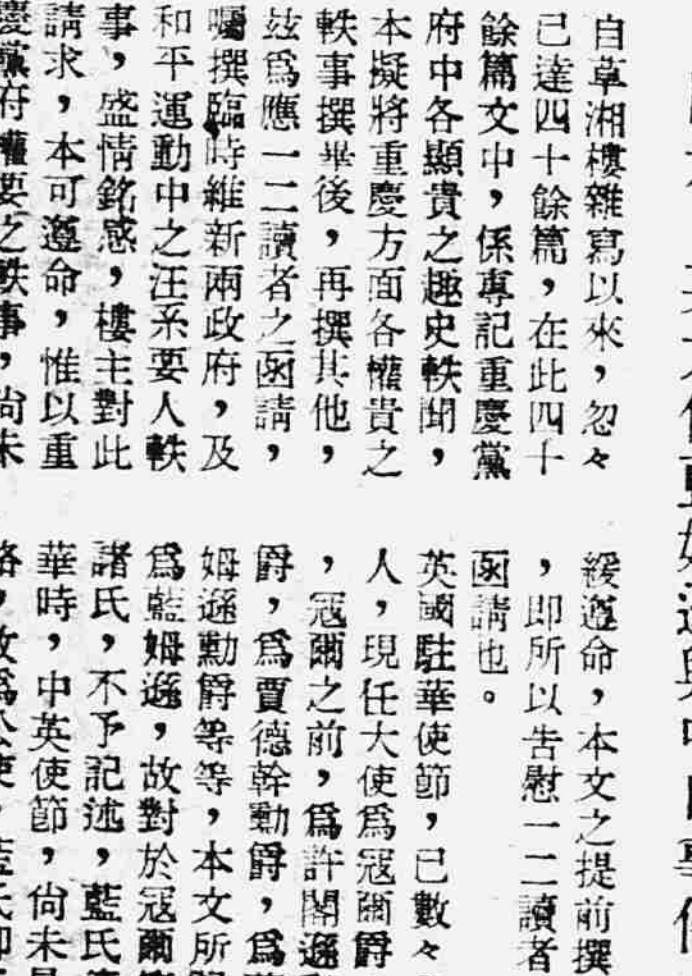 自草湘樓雜寫以來，忽々
已達四十餘篇，在此四十
餘篇文中，係專記重慶黨
府中各顯貴之趣史軼聞，
本擬將重慶方面各權貴之
軼事撰畢後，再撰其他，
玆爲應一二讀者之函請，
囑撰臨時維新兩政府，及
和平運動中之汪系要人軼
事，盛情銘感，樓主對此
請求，本可遵命，惟以重
慶黨府權要之軼事，尙未
緩遵命，本文之提前撰
，即所以告慰一二讀者
函請也。
英國駐華使節，已數々
人，現任大使爲冦爾爵
，冦爾之前，爲許閣遜
爵，爲賈德幹勳爵，爲
姆遜勳爵等等，本文所
爲藍姆遜，故對於冦爾
諸氏，不予記述，藍氏
華時，中英使節，尙未